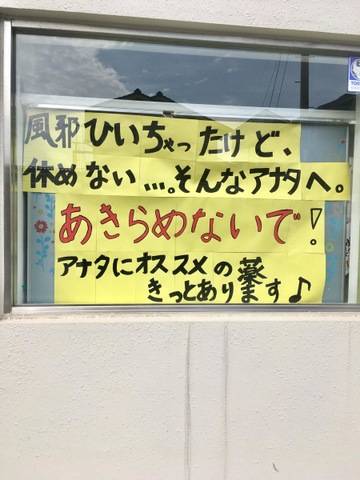 風邪ひいちゃったけど、
休めない…。そんなアナタへ。
あきらめないで!
アナタにオススメの薬
きっとあります♪